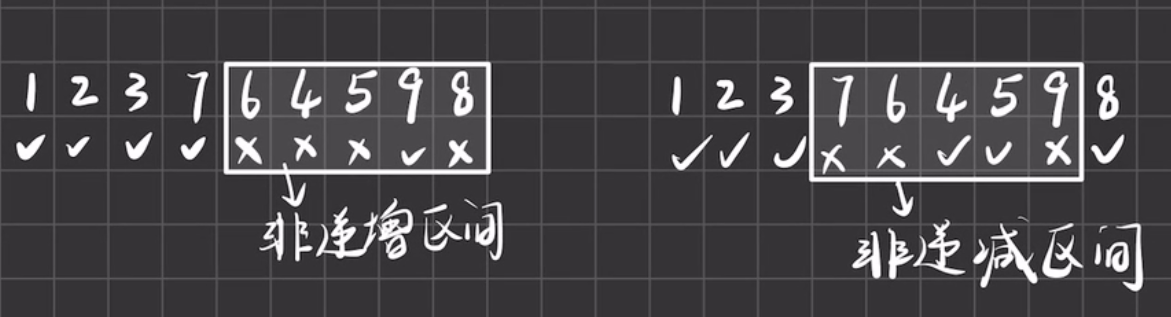 1 2 3 7 6 4 5 9 8
✓ ✓ ✓ ✓ × × × ✓ ×
非递增区间
1 2 3 7 6 4 5 9 8
✓ ✓ ✓ × × ✓ ✓ × ✓
非递减区间